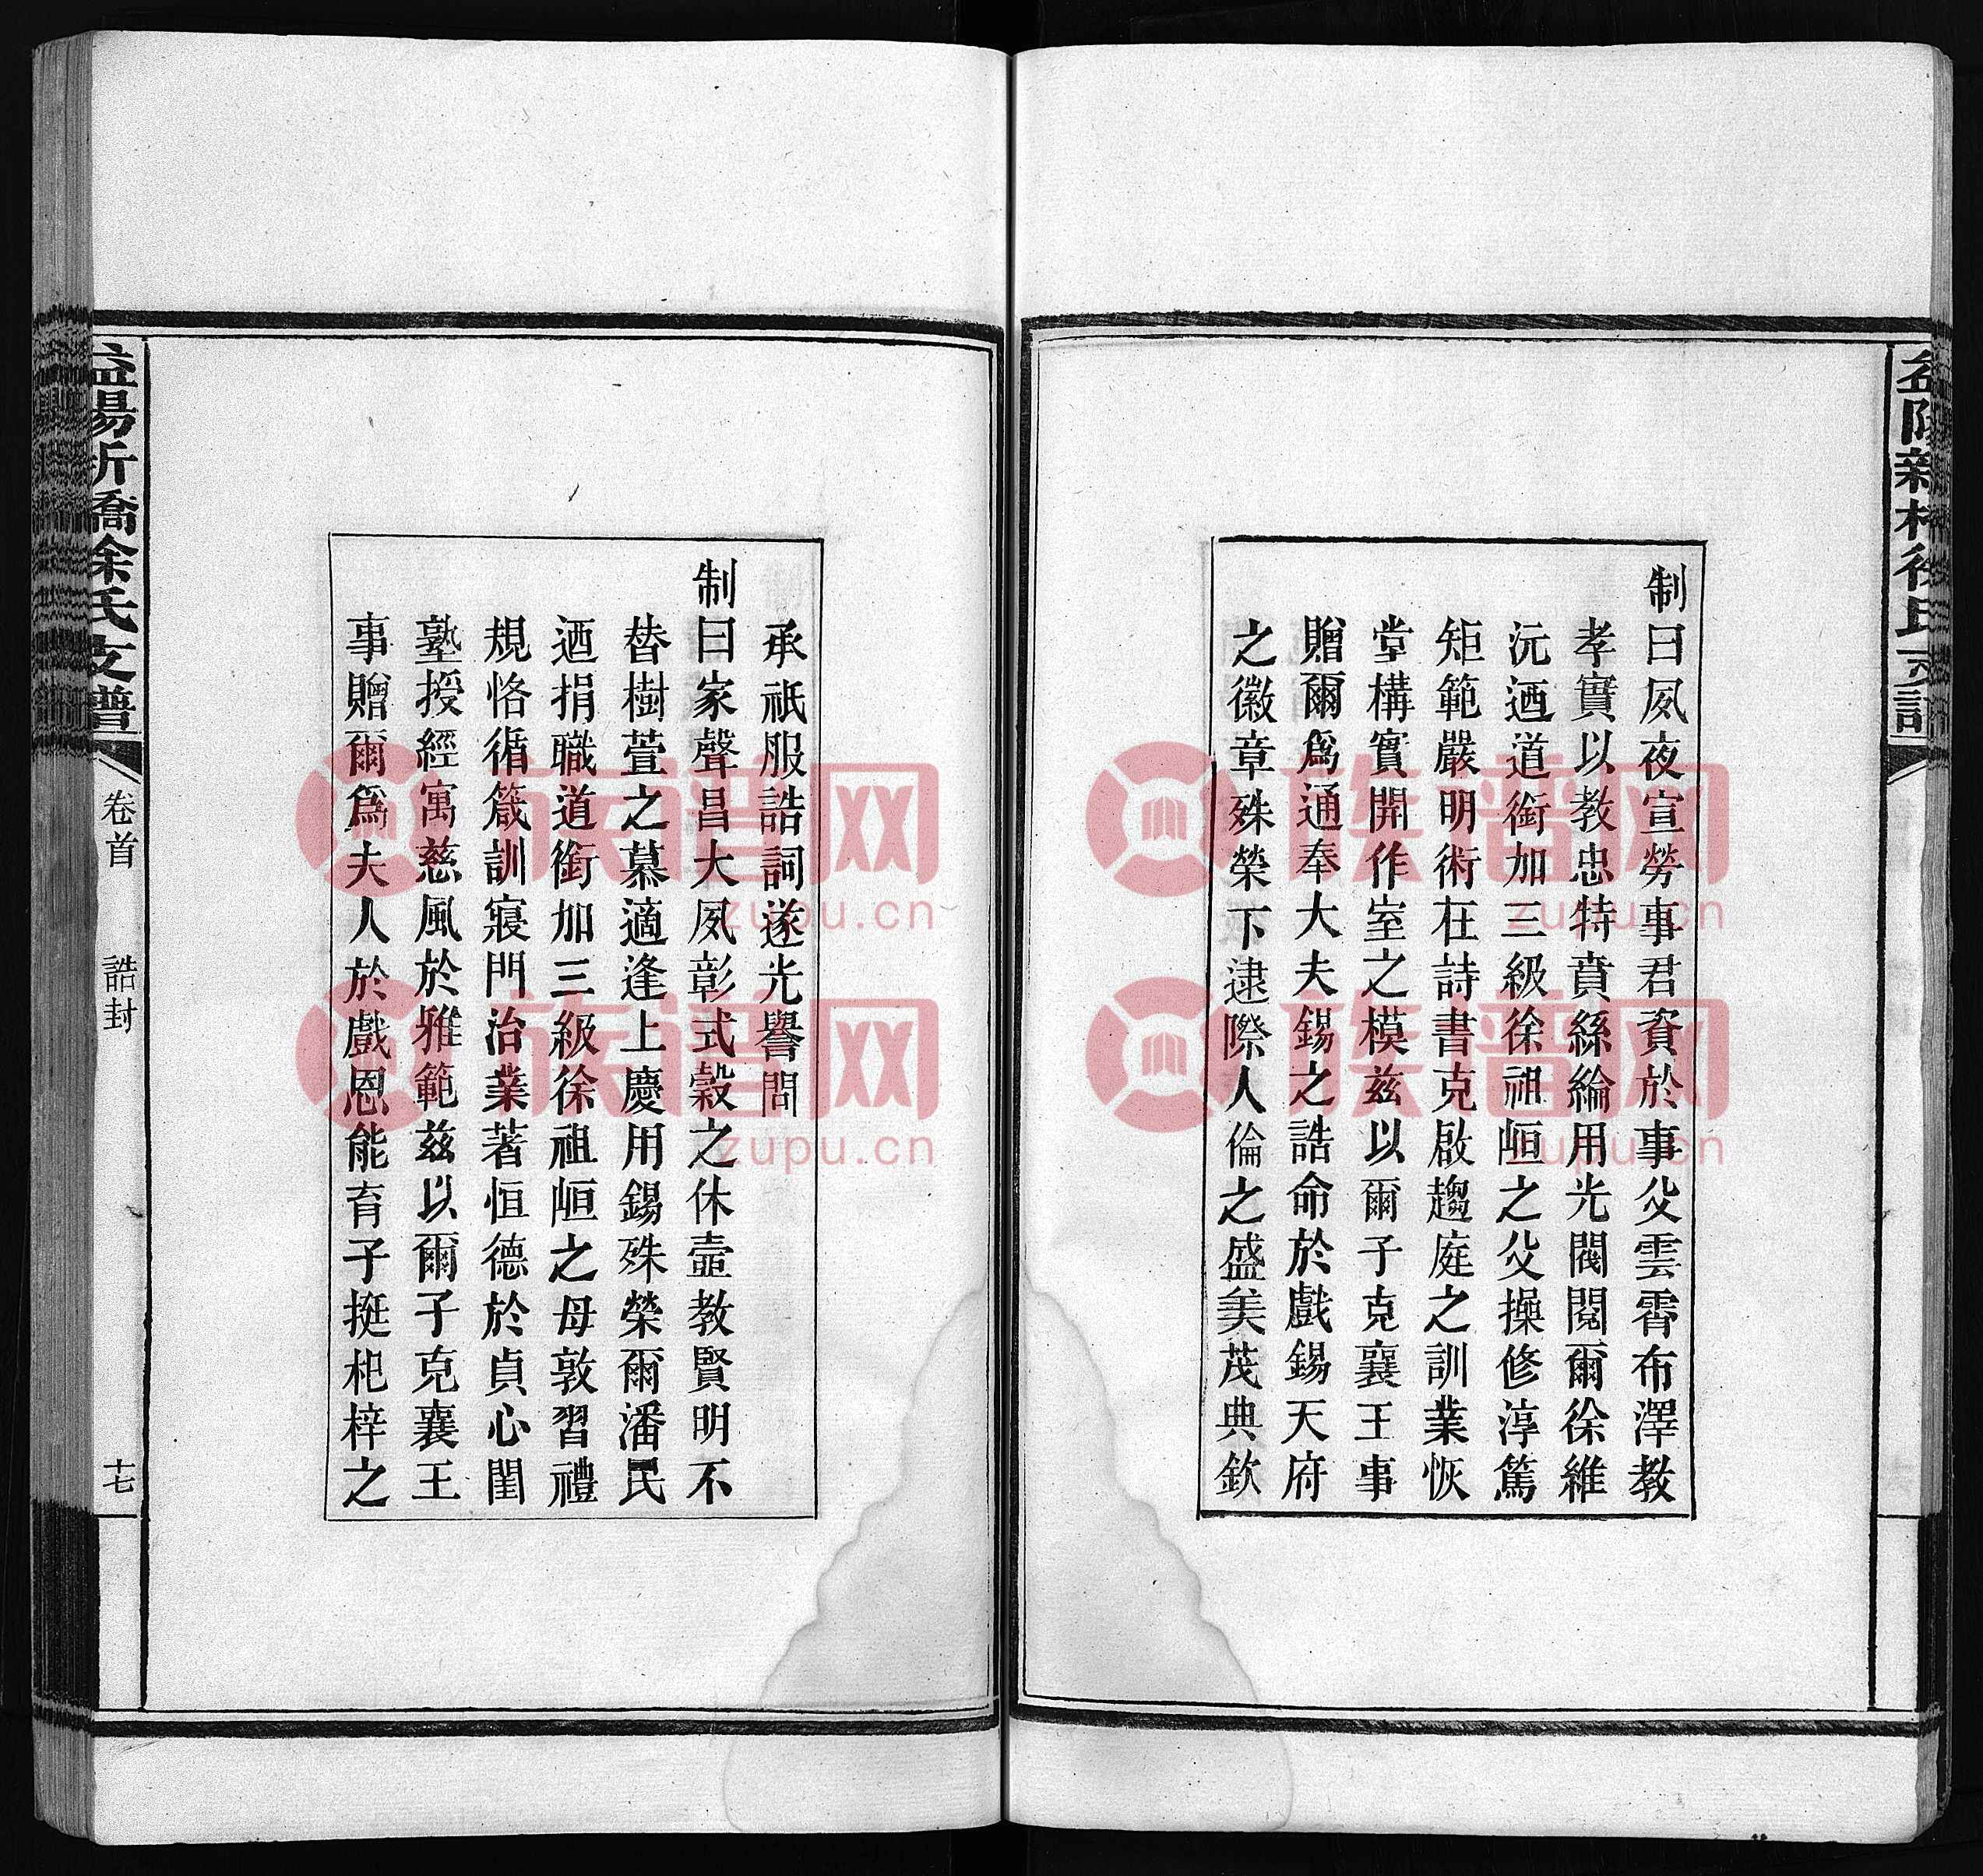 益陽新橋徐氏支譜
制曰夙夜宣勞事君資於事父雲霄布澤教
孝實以教忠特賁絲綸用光閥閱爾徐維
沅迺道銜加三級徐祖峘之父操修淳篤
矩範嚴明術在詩書克啟趨庭之訓業恢
堂構實開作室之模兹以爾子克襄王事
贈爾爲通奉大夫錫之誥命於戲錫天府
之徽章殊榮下逮際人倫之盛美茂典欽
承祇服誥詞遂光譽問
制曰家聲昌大夙彰式穀之休壼教賢明不
替樹萱之慕適逢上慶用錫殊榮爾潘氏
迺捐職道銜加三級徐祖峘之母敦習禮
規恪循箴訓寢門治業著恒德於貞心閨
塾授經寓慈風於雅範兹以爾子克襄王
事贈爾爲夫人於戲恩能育子挺杞梓之
益陽新橋徐氏支譜
卷首 誥封 十七
族谱网
zupu.cn
族谱网
zupu.cn
族谱网
zupu.cn
族谱网
zupu.cn